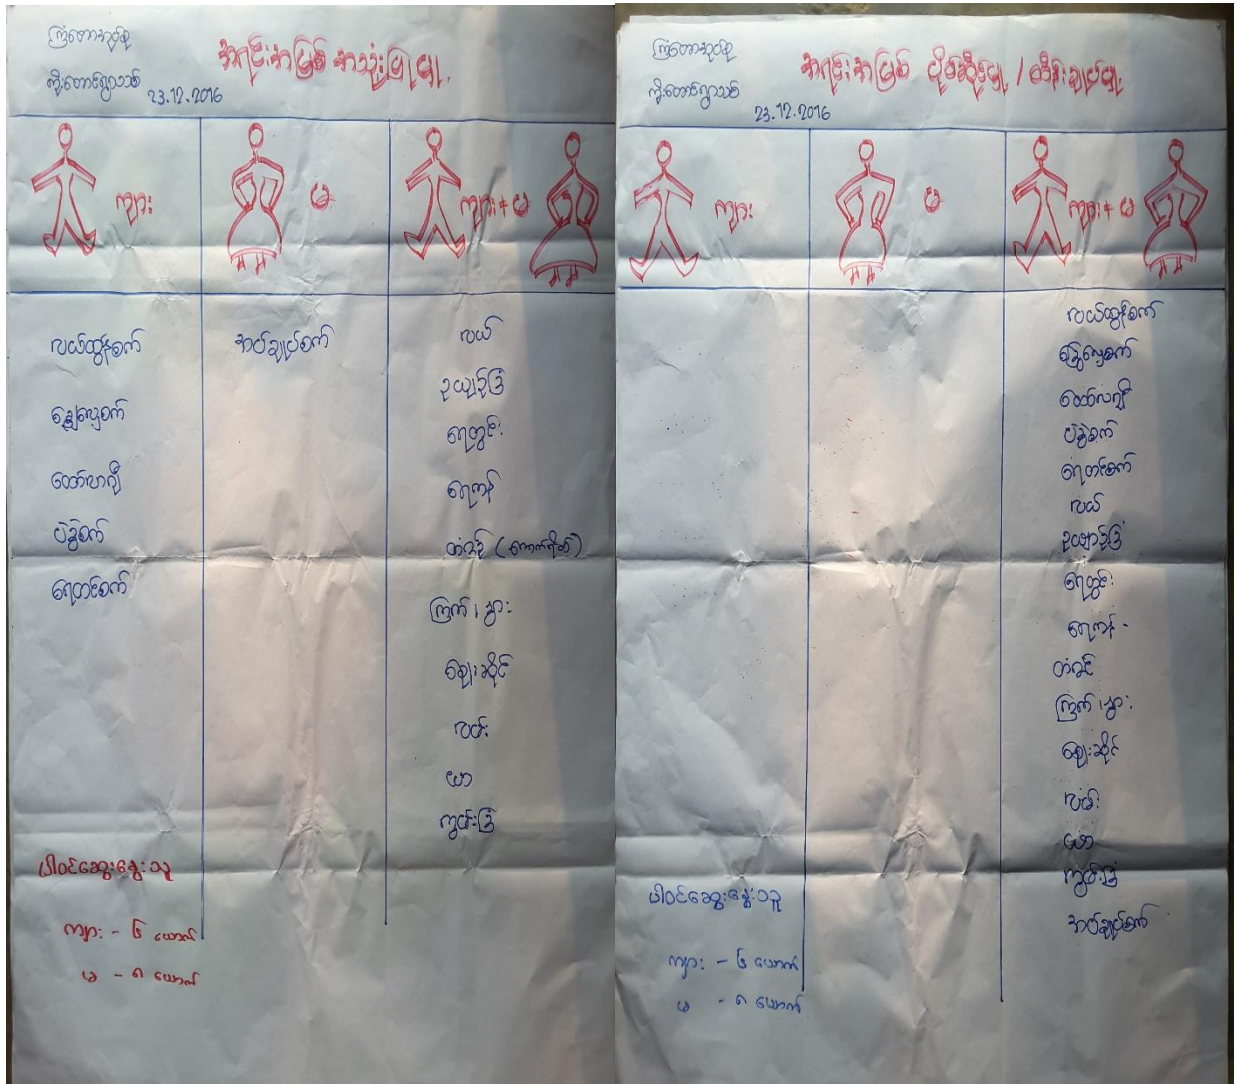 ကြံတောအုပ်စု
ကိုးတောင်ရွာသစ်
23.12.2016
အရင်းအမြစ် အသုံးပြုမှု
ကျား
မ
ကျား+မ
လယ်ထွန်စက်
အပ်ချုပ်စက်
လယ်
ခြွေလှေ့စက်
ဥယျာဉ်ခြံ
ထော်လာဂျီ
ရေတွင်း
ပဲခွဲစက်
ရေကန်
ရေတင်စက်
တံငါ
ကြက်၊ နွား
ဈေးဆိုင်
လမ်း
ယာ
ကွမ်းခြံ
ပါဝင်ဆွေးနွေးသူ
ကျား - ၆ ယောက်
မ - ၈ ယောက်
ကြံတောအုပ်စု
ကိုးတောင်ရွာသစ်
23.12.2016
အရင်းအမြစ် ပိုင်ဆိုင်မှု / ထိန်းချုပ်မှု
ကျား
မ
ကျား+မ
လယ်ထွန်စက်
ခြွေလှေ့စက်
ထော်လာဂျီ
ပဲခွဲစက်
ရေတင်စက်
လယ်
ဥယျာဉ်ခြံ
ရေတွင်း
ရေကန် -
တံငါ
ကြက်၊ နွား
ဈေးဆိုင်
လမ်း
ယာ
ကွမ်းခြံ
အပ်ချုပ်စက်
ပါဝင်ဆွေးနွေးသူ
ကျား - ၆ ယောက်
မ - ၈ ယောက်